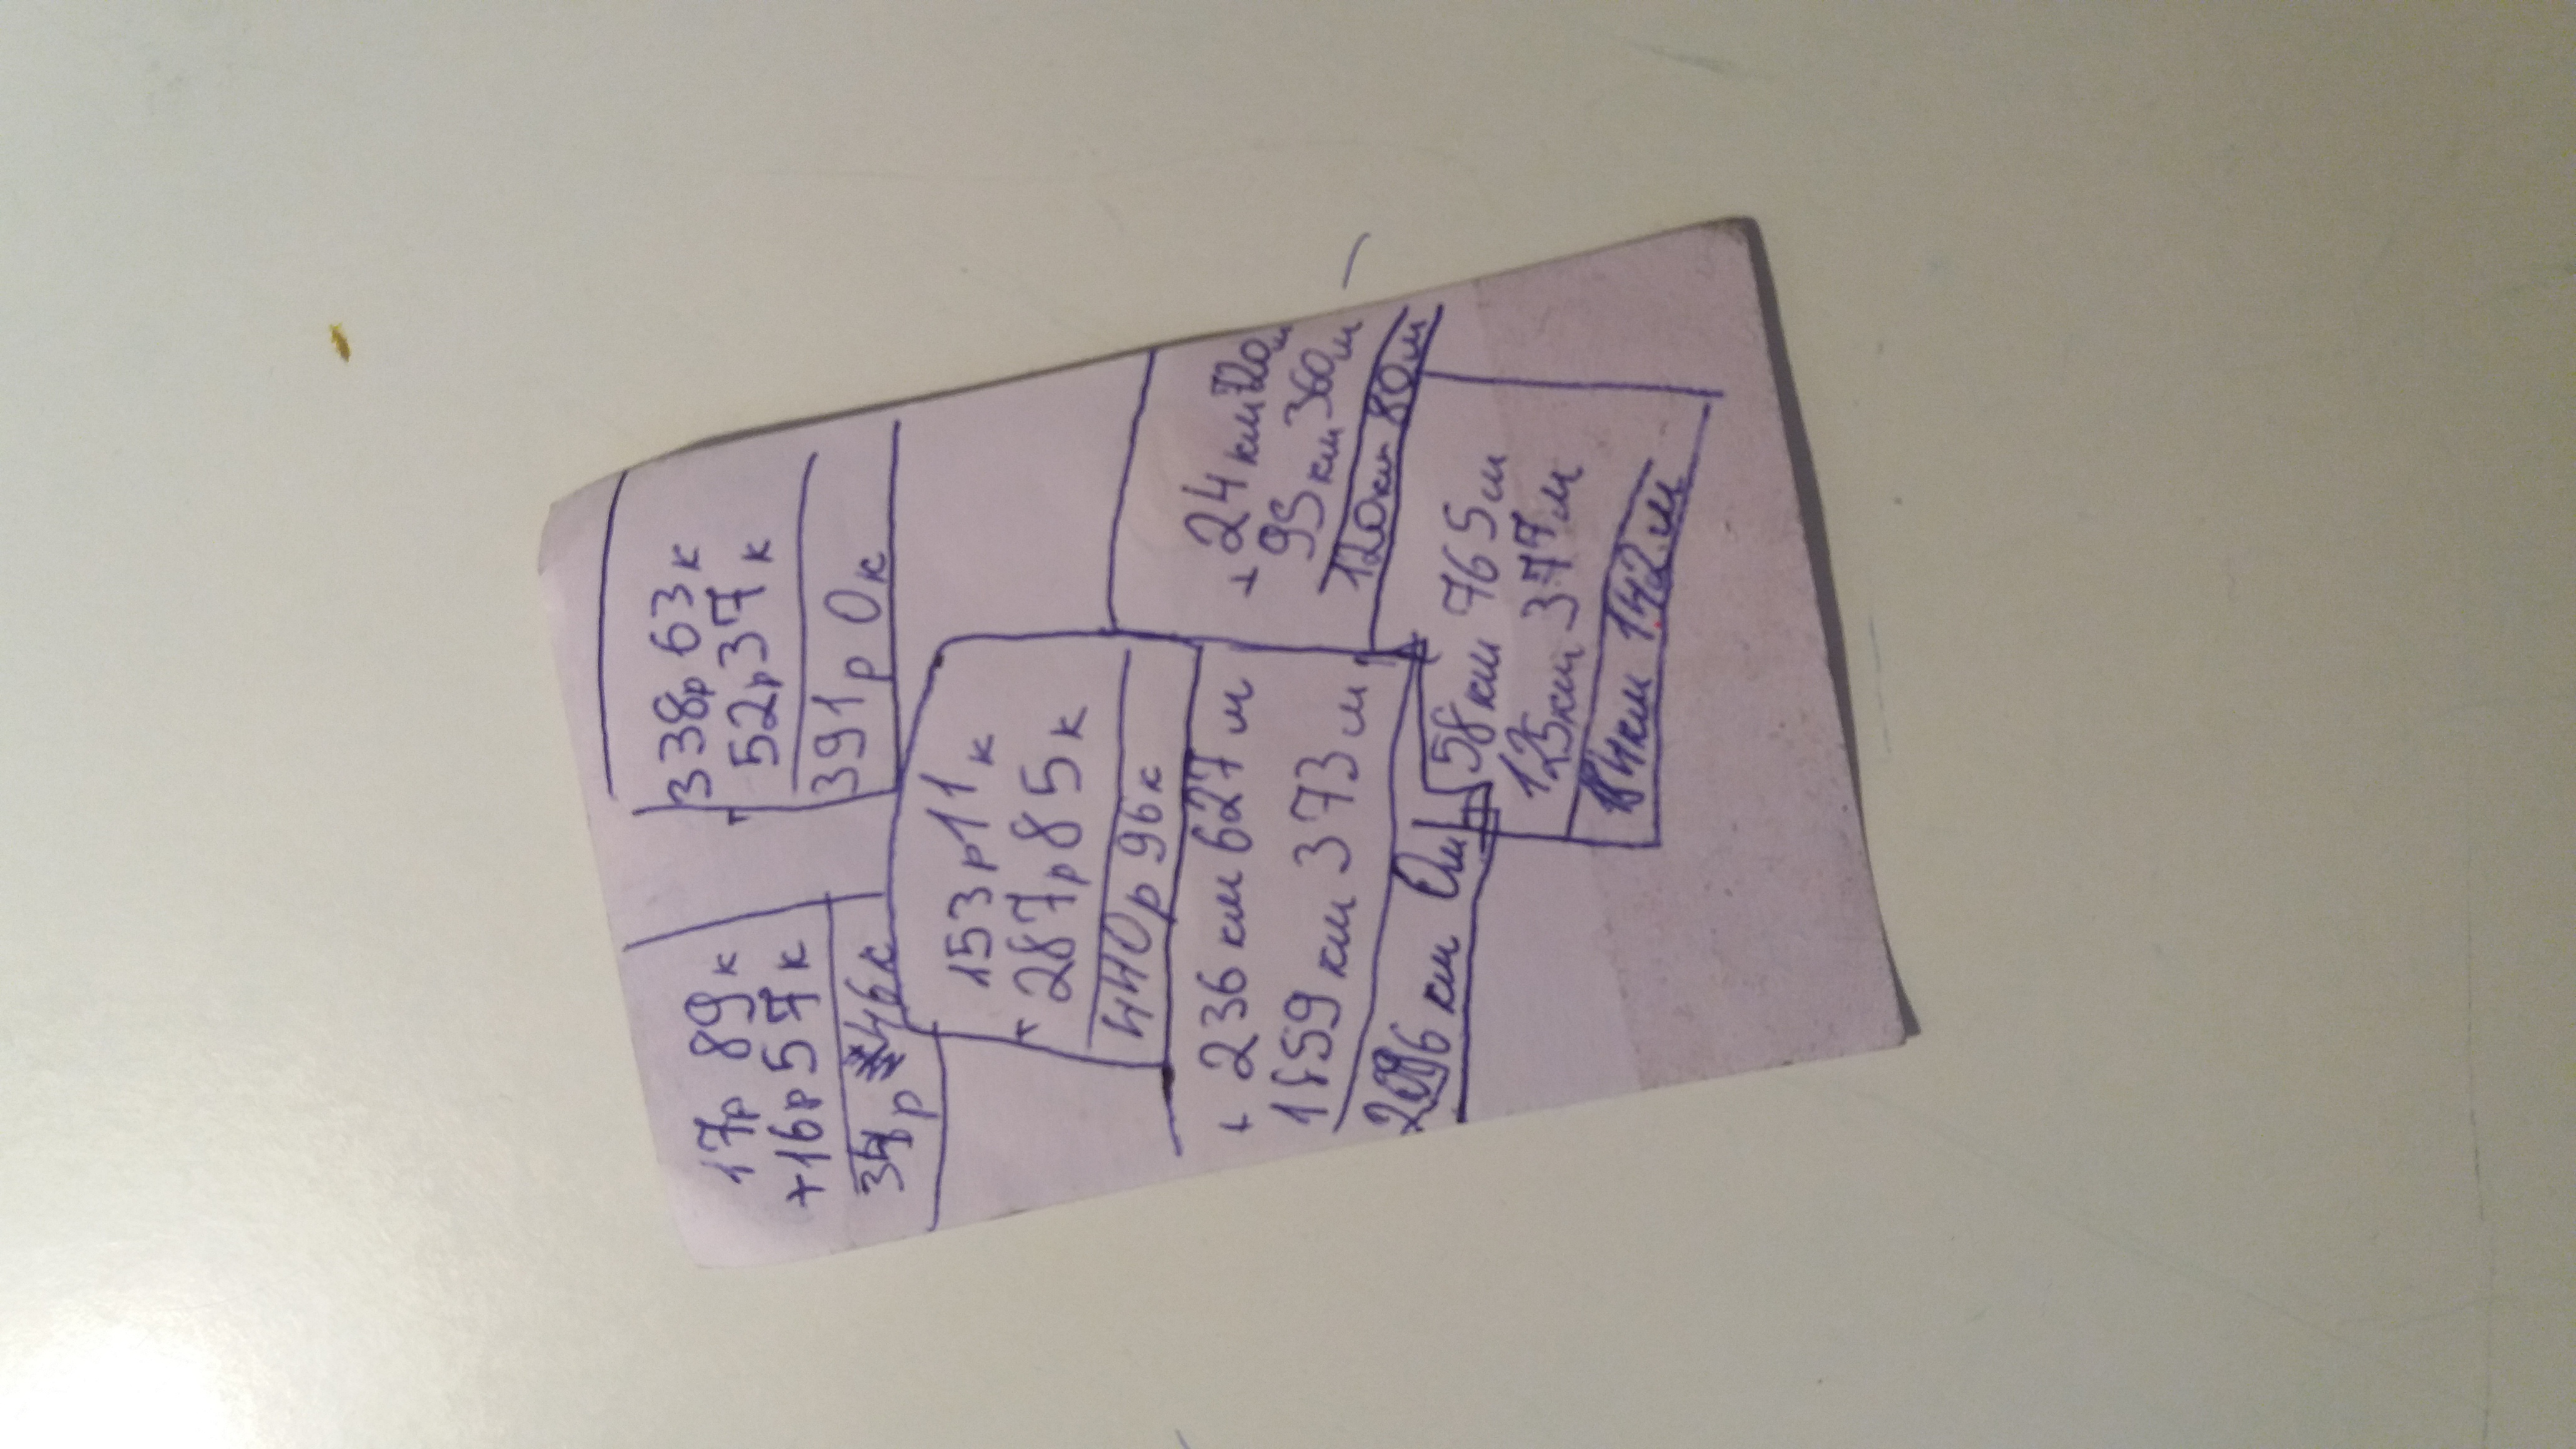 17р 89к
+16р57к
34р 46к
338р63к
52р37к
391р 0к
153р11к
+ 287р85к
440р96к
+ 236км627м
1459км373м
км 0м
+ 24км720м
95км360м
120км 80м
58км 765м
125км377м
184км 142м